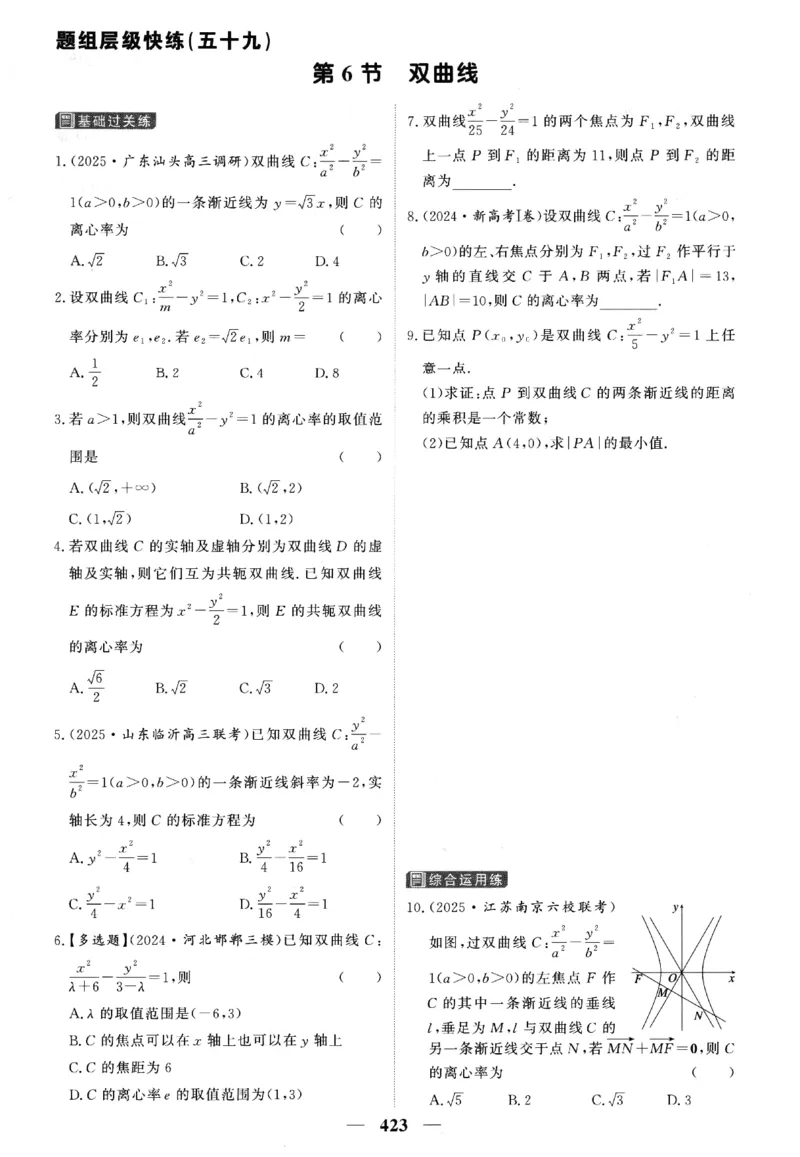 题组层级快练(五十九)
第 6 节 双曲线
基础过关练
1.(2025·广东汕头高三调研)双曲线 C:x²/a²-y²/b²=
1(a>0,b>0)的一条渐近线为 y=√3x,则 C 的
离心率为 ( )
A.√2 B.√3 C.2 D.4
2.设双曲线 C₁:x²/m-y²=1,C₂:x²-y²/2=1 的离心
率分别为 e₁,e₂.若 e₂=√2e₁,则 m= ( )
A.1/2 B.2 C.4 D.8
3.若 a>1,则双曲线x²/a²-y²=1 的离心率的取值范
围是 ( )
A.(√2,+∞) B.(√2,2)
C.(1,√2) D.(1,2)
4.若双曲线 C 的实轴及虚轴分别为双曲线 D 的虚
轴及实轴,则它们互为共轭双曲线.已知双曲线
E 的标准方程为 x²-y²/2=1,则 E 的共轭双曲线
的离心率为 ( )
A.√6/2 B.√2 C.√3 D.2
5.(2025·山东临沂高三联考)已知双曲线 C:y²/a²-
x²/b²=1(a>0,b>0)的一条渐近线斜率为-2,实
轴长为 4,则 C 的标准方程为 ( )
A.y²-x²/4=1 B.y²/4-x²/16=1
C.y²/4-x²=1 D.y²/16-x²/4=1
6.【多选题】(2024·河北邯郸三模)已知双曲线 C:
x²/(λ+6)-y²/(3-λ)=1,则 ( )
A.λ 的取值范围是(-6,3)
B.C 的焦点可以在 x 轴上也可以在 y 轴上
C.C 的焦距为 6
D.C 的离心率 e 的取值范围为(1,3)
7.双曲线x²/25-y²/24=1 的两个焦点为 F₁,F₂,双曲线
上一点 P 到 F₁ 的距离为 11,则点 P 到 F₂ 的距
离为________.
8.(2024·新高考Ⅰ卷)设双曲线 C:x²/a²-y²/b²=1(a>0,
b>0)的左、右焦点分别为 F₁,F₂,过 F₂ 作平行于
y 轴的直线交 C 于 A,B 两点,若|F₁A|=13,
|AB|=10,则 C 的离心率为________.
9.已知点 P(x₀,y₀)是双曲线 C:x²/5-y²=1 上任
意一点.
(1)求证:点 P 到双曲线 C 的两条渐近线的距离
的乘积是一个常数;
(2)已知点 A(4,0),求|PA|的最小值.
综合运用练
10.(2025·江苏南京六校联考)
如图,过双曲线 C:x²/a²-y²/b²=
1(a>0,b>0)的左焦点 F 作
C 的其中一条渐近线的垂线
l,垂足为 M,l 与双曲线 C 的
另一条渐近线交于点 N,若 MN→+MF→=0,则 C
的离心率为 ( )
A.√5 B.2 C.√3 D.3
y
F O x
M
N
— 423 —